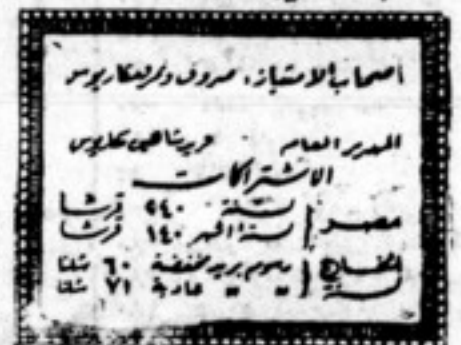 اصحاب الامتياز، صروف ونمر ومكاريوس
المدير العام
الاشتراكات
مصر
لسنة ٢٤٠ قرشا
لستة اشهر ١٤٠ قرشا
الخارج لسنة
برسوم بريد مخفضة ٦٠ شلنا
" " عادية ٧١ شلنا